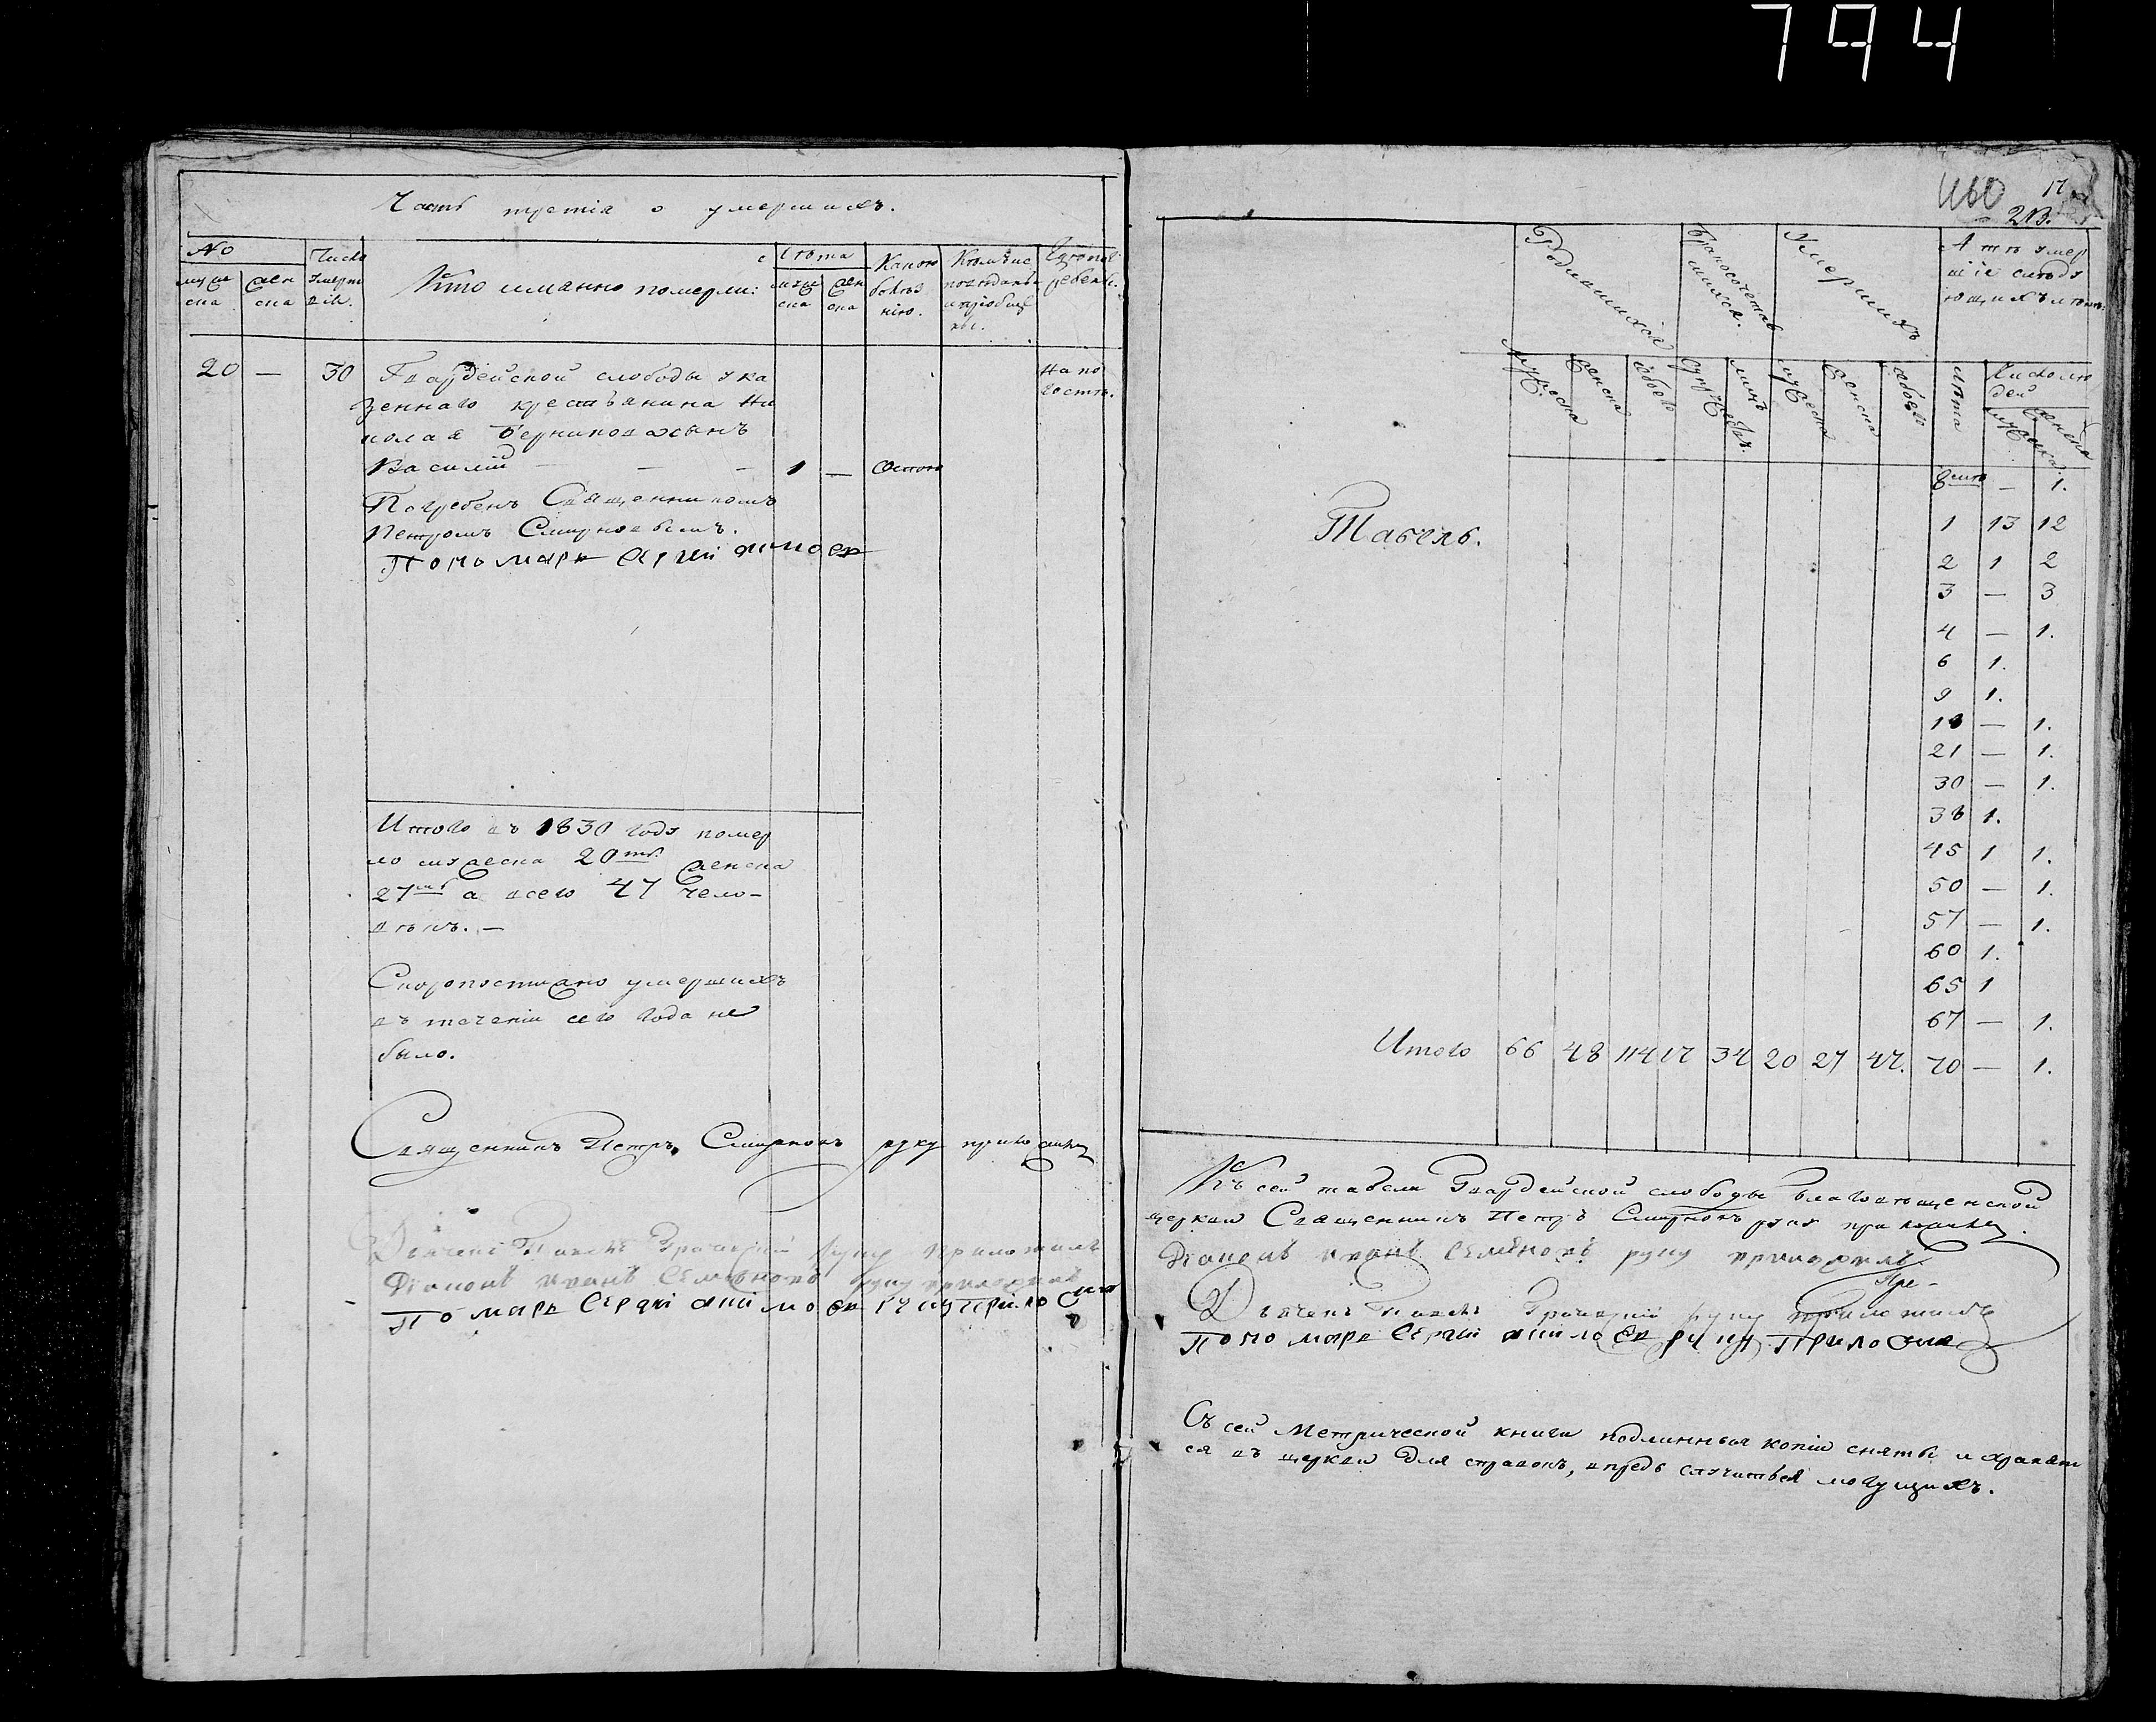 794
Часть третія о умершихъ.
No
Число умертвія.
Кто имянно померли:
Лѣта
Какою болѣзнію.
Кѣмъ исповѣданы и пріобщены.
Гдѣ погребены.
мужеска
женска
мужеска
женска
20 — 30 Гвардейской слободы ука
зеннаго крестьянина Ни
колая сынъ
Василій — — — 1 — Оспою
На по
гостѣ.
Погребенъ Священникомъ
Петромъ Смирновымъ.
Пономарь
Итого въ 1830 году помер
ло мужеска 20ть женска
27мь а всего 47 чело-
вѣкъ. —
Скоропостижно умершихъ
въ теченіи сего года не
было.
Священникъ Петръ Смирновъ руку приложилъ
Дьячекъ руку приложилъ
Діаконъ Иванъ Семеновъ руку приложилъ
160
17
213.
Родившихся
Бракосочетавшихся.
Умершихъ
А тѣ умер
шіе слѣду
ющихъ лѣтъ:
мужеска
женска
обоего
супружествъ
лицъ
мужеска
женска
обоего
лѣта
Число лю
дей
мужеска
женска
Табель.
— 1.
1 13 12
2 1 2
3 — 3
4 — 1.
6 1.
9 1.
— 1.
21 — 1.
30 — 1.
38 1.
45 1 1.
50 — 1.
57 — 1.
60 1.
65 1
67 — 1.
Итого 66 48 114 17 34 20 27 47. 70 — 1.
Къ сей табели Гвардейской слободы Благовѣщенской
церкви Священникъ Петръ Смирновъ руку приложилъ.
Діаконъ Иванъ Семеновъ руку приложилъ
Дьячекъ руку приложилъ
Пономарь руку приложилъ
Съ сей Метрической книги подлинныя копіи сняты и хранят
ся въ церкви для справокъ, впредь случиться могущихъ.